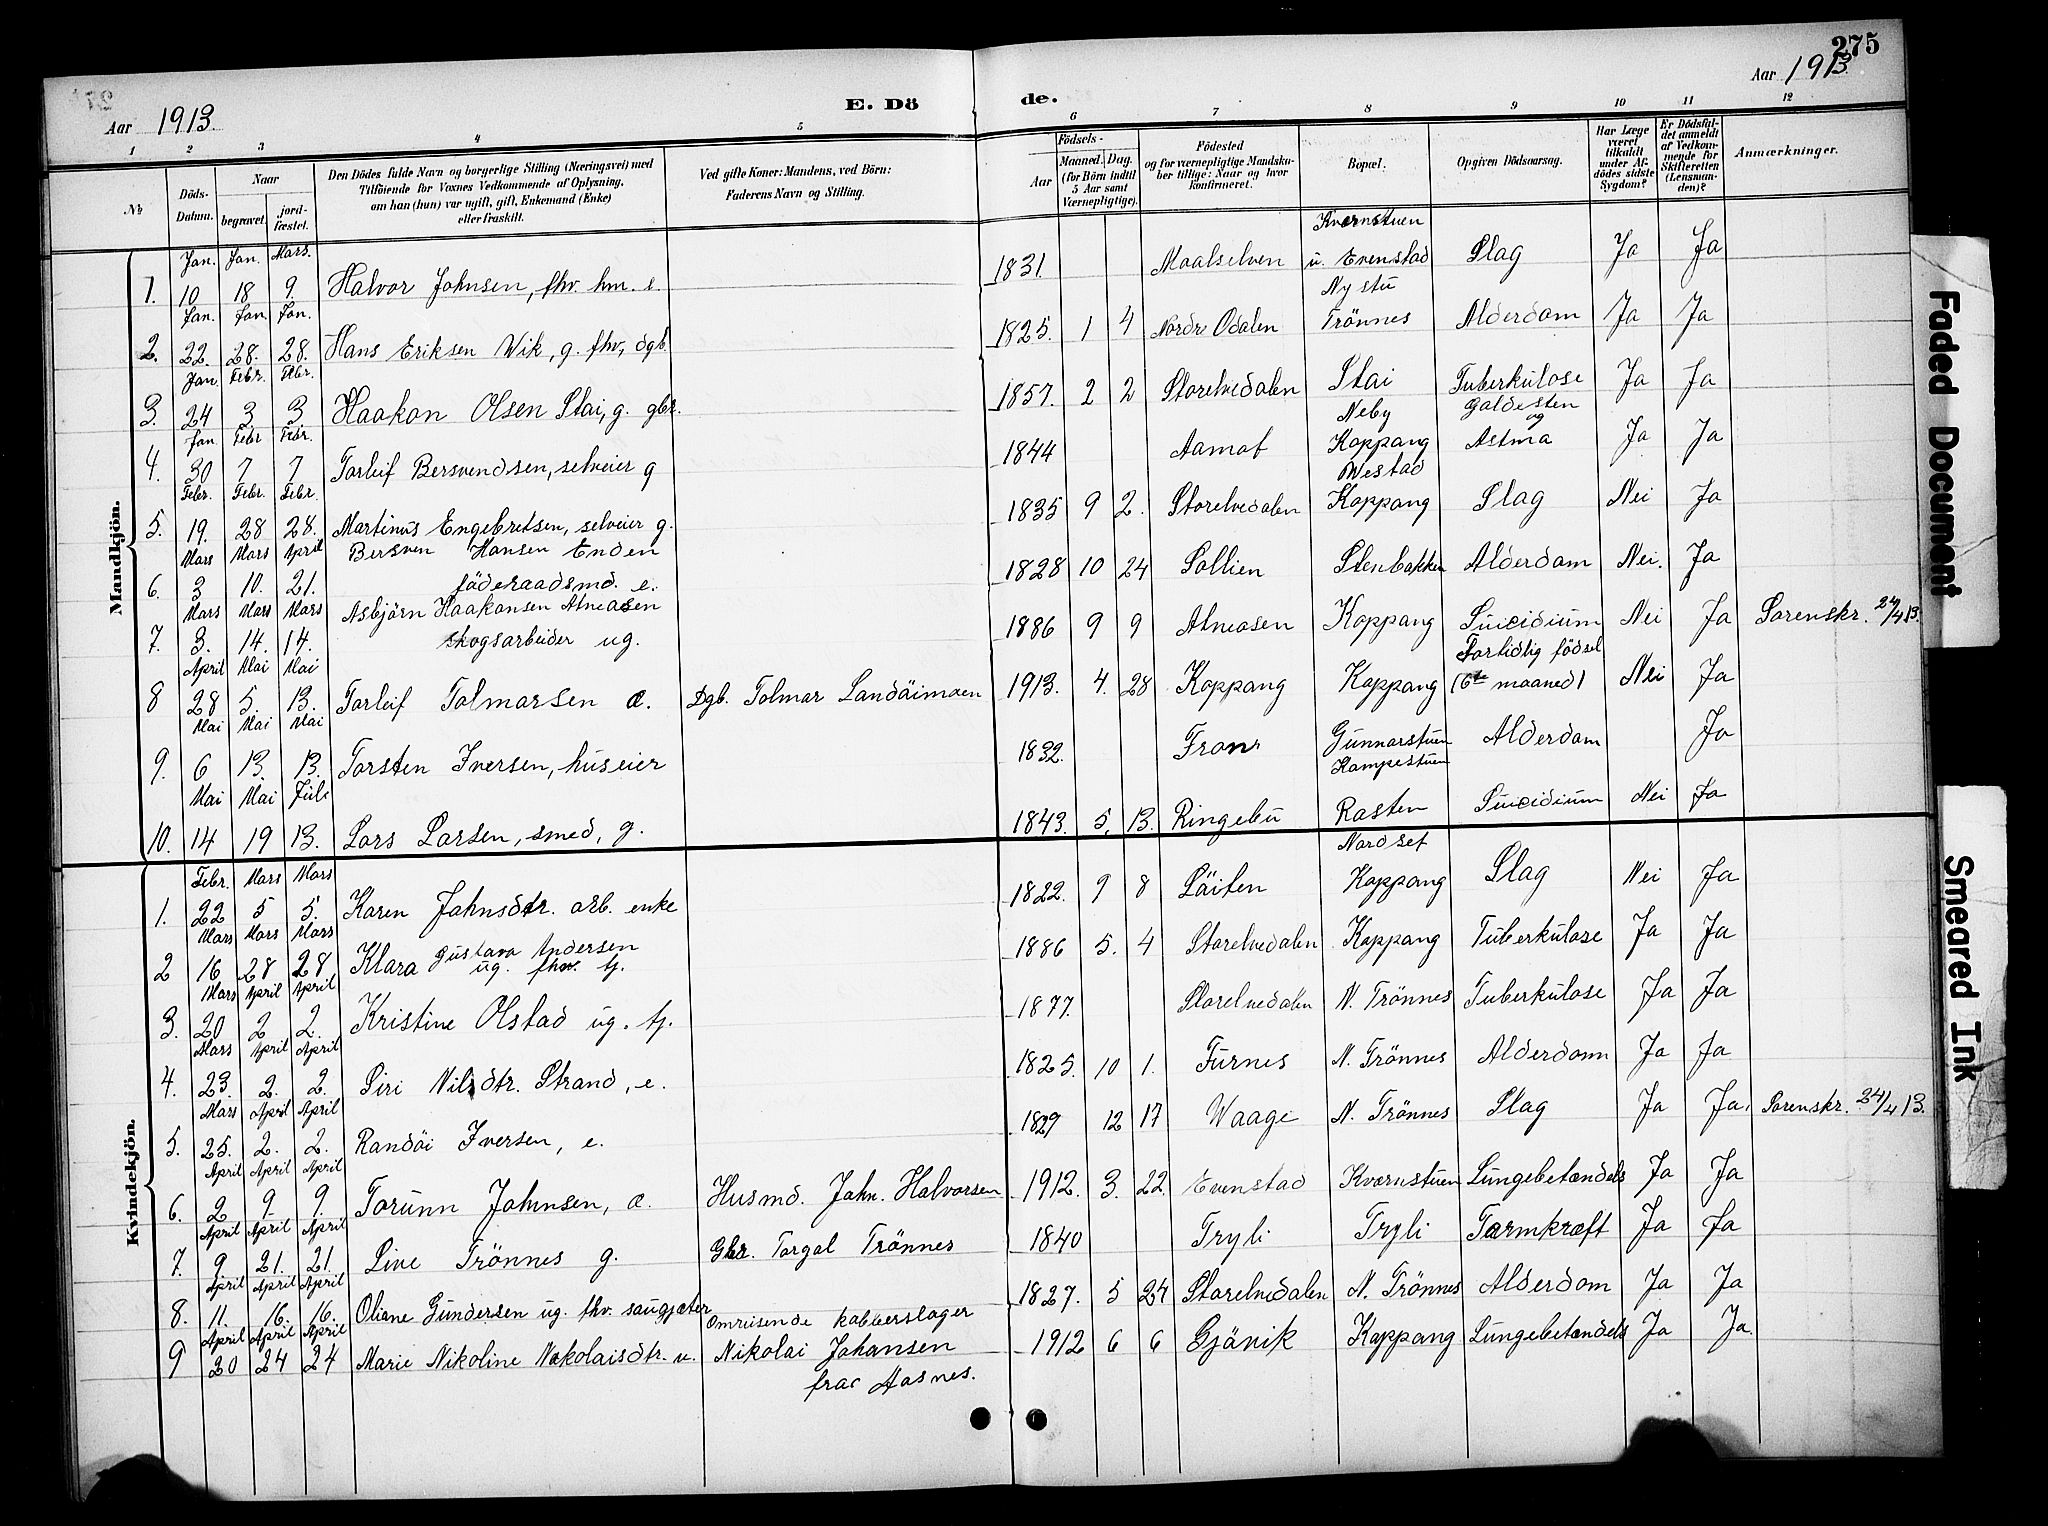 275
Aar 1913.
E. Dö de.
Aar 1913
1 2 3 4 5 6 7 8 9 10 11 12
№
Döds-Datum.
Naar
begravet.
jord-fæstet.
Den Dödes fulde Navn og borgerlige Stilling (Næringsvei) med
Tilföiende for Voxnes Vedkommende af Oplysning,
om han (hun) var ugift, gift, Enkemand (Enke)
eller fraskilt.
Ved gifte Koner: Mandens, ved Börn:
Faderens Navn og Stilling.
Födsels-
Aar
Maaned. Dag.
(for Börn indtil
5 Aar samt
Værnepligtige).
Födested
og for værnepligtige Mandska-
ber tillige: Naar og hvor
konfirmeret.
Bopæl.
Opgiven Dödsaarsag.
Har Læge
været
tilkaldt
under Af-
dödes sidste
Sygdom?
Er Dödsfal-
det anmeldt
af Vedkom-
mende for
Skifteretten
(Lensman-
den)?
Anmærkninger.
Mandkjön.
1. Jan. 10 Jan. 18 Mars. 9. Halvor Johnsen, fhv. hm. e. 1831. Maalselven Kvernstuen u. Evenstad Slag Ja Ja
2. Jan. 22. Jan. 28. Jan. 28. Hans Eriksen Wik, g. fhv, dgb. 1825. 1 4 Nordr Odalen Nystu Trönnes Alderdom Ja Ja
3. Jan. 24 Febr. 3 Febr. 3 Haakon Olsen Stai, g. gbr. 1857. 2 2 Storelvedalen Stai Tuberkulose Ja Ja
4. Jan 30 Febr 7 Febr. 7 Torleif Bersvendsen, selveier g 1844 Aamot Neby Koppang Galdesten og Astma Ja Ja
5. Febr. 19. Febr. 28 Febr. 28. Martinus Engebretsen, selveier g. 1835 9 2. Storelvedalen Westad Koppang Slag Nei Ja
6. Mars 3 Mars 10. April 21. Bersven Hansen Enden föderaadsmd. e. 1828 10 24 Sollien Stenbakken Alderdom Nei. Ja
7. Mars 3. Mars 14. Mars 14. Asbjörn Haakonsen Atneosen skogsarbeider ug. 1886 9 9 Atneosen Koppang Suicidium Nei Ja Sorenskr. 24/4 13.
8 April 28 Mai 5. Mai 13. Torleif Tolmarsen u. Dgb. Tolmar Landöimoen 1913. 4. 28 Koppang Koppang Fortidlig födsel (6te maaned) Nei Ja
9. Mai 6 Mai 13. Mai 13. Torsten Iversen, huseier 1832. Fron Gunnarstuen Alderdom Ja
10. Mai 14 Mai 19 Juli 13. Lars Larsen, smed, g. 1843. 5. 13. Ringebu Kampestuen Rasten Suicidium Nei Ja
Kvindekjön.
1. Febr. 22 Mars 5 Mars 5. Karen Johnsdtr. arb. enke 1822. 9 8 Löiten Nordset Koppang Slag Nei Ja
2 Mars 16 Mars 28 Mars 28 Klara Gustava Andersen ug. fhv. tj. 1886 5. 4 Storelvedalen Koppang Tuberkulose Ja Ja
3. Mars 20 April 2 April 2. Kristine Olstad ug. tj. 1877. Storelvedalen N. Trönnes Tuberkulose Ja Ja
4. Mars 23. April 2. April 2. Siri Nilsdtr. Strand, e. 1825. 10 1. Furnes N. Trönnes Alderdom Ja Ja
5. Mars 25. April 2. April 2. Randöi Iversen, e. 1829 12 17 Waage N. Trönnes Slag Ja Ja. Sorenskr. 24/4 13.
6. April 2 April 9. April 9. Torunn Johnsen, u. Husmd. John. Halvorsen 1912. 3. 22. Evenstad Kvernstuen Lungebetændels Ja Ja
7. April 9 April 21. April 21. Live Trönnes g. Gbr. Torgal Trönnes 1840 Tryli Tryli Tarmkræft Ja Ja
8. April 11. April 16. April 16. Oliane Gundersen ug. fhv. saugjæter 1827. 5 24 Storelvedalen N. Trönnes Alderdom Ja Ja
9 April 20 April 24 April 24 Marie Nikoline Nikolaisdtr. u. Omreisende kobberslager Nikolai Johansen fra Aasnes. 1912 6 6 Gjövik Koppang Lungebetændels Ja Ja.
Faded Document
Smeared Ink